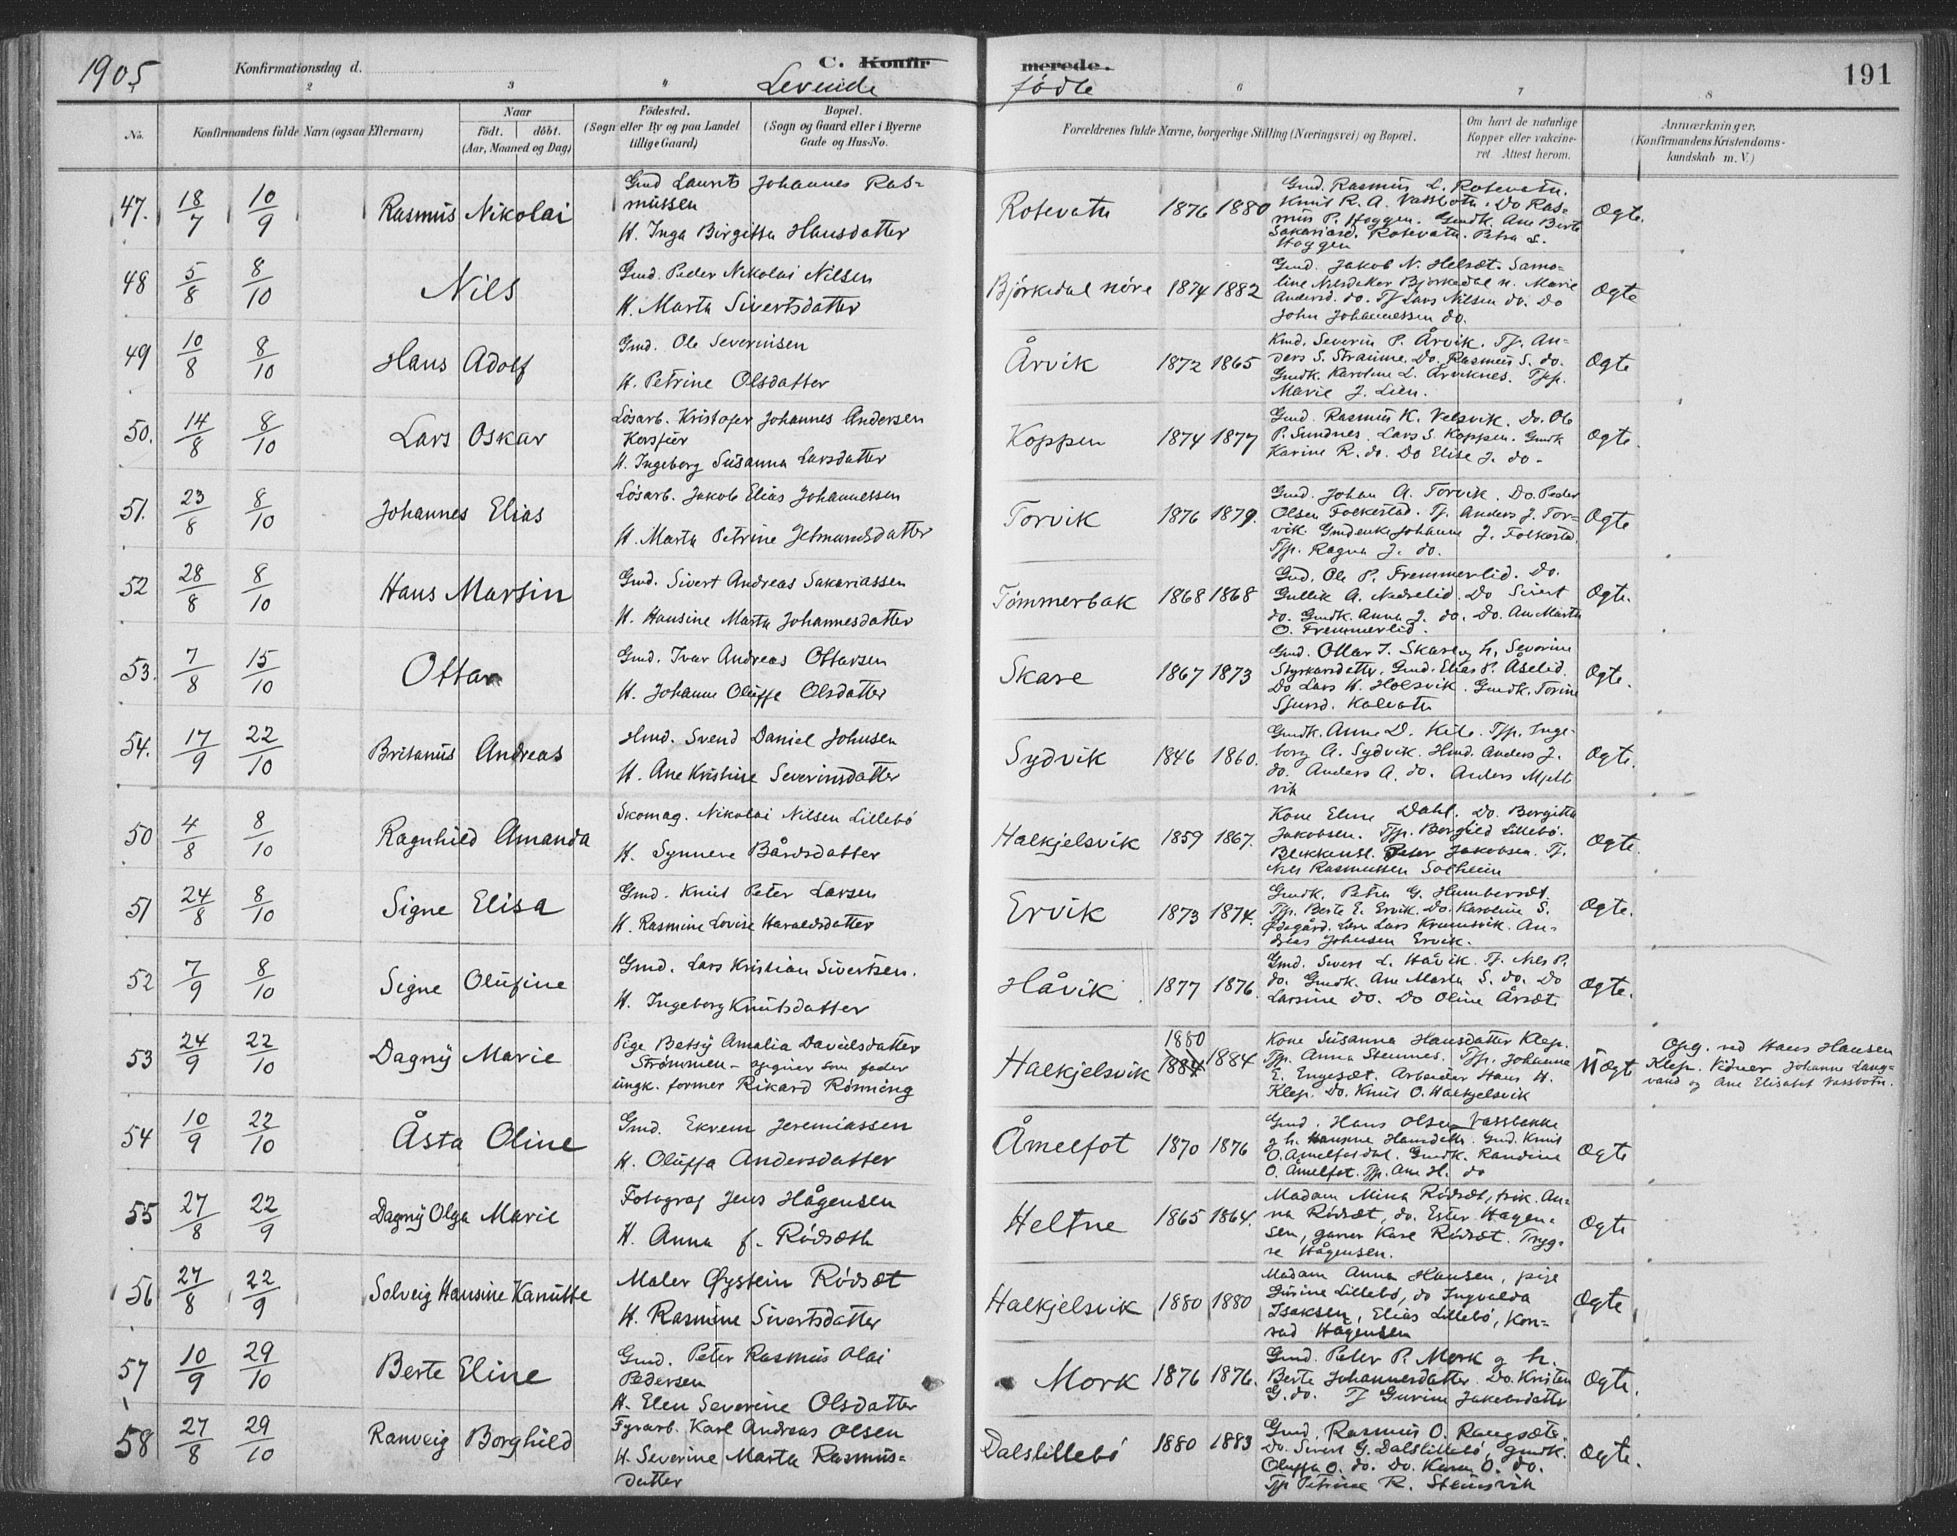 1905
Konfirmationsdag d.
C. Konfir
merede.
Levende
fødte
191
2 3 4 6 7 8
No.
Konfirmandens fulde Navn (ogsaa Efternavn)
Naar
født. døbt.
(Aar, Maaned og Dag)
Fødested.
(Sogn eller By og paa Landet
tillige Gaard)
Bopæl.
(Sogn og Gaard eller i Byerne
Gade og Hus-No.
Forældrenes fulde Navne, borgerlige Stilling (Næringsvei) og Bopæl.
Om havt de naturlige
Kopper eller vakcine-
ret Attest herom.
Anmærkninger.
(Konfirmandens Kristendoms-
kundskab m. V.)
47. 18/7 10/9 Rasmus Nikolai
Gmd Laurits Johannes Ras-
mussen
H. Inga Birgitta Hansdatter
Rotevatn 1876 1880
Gmd. Rasmus L. Rotevatn.
Knut R. A. Vassbotn. Do Ras-
mus P. Hoggen. Gmdk. Ane Berte
Sakariasd. Rotevatn. Petra L.
Hoggen
Ægte.
48 5/8 8/10 Nils
Gmd. Peder Nikolai Nilsen
H. Marta Sivertsdatter
Bjørkedal nøre 1874 1882
Gmd. Jakob N. Helset. Samo-
line Nilsdatter Bjørkedal n. Marie
Andersd. do. Tj Lars Nilsen do. Do
John Johannessen do.
Ægte
49 10/8 8/10 Hans Adolf
Gmd. Ole Severinsen
H. Petrine Olsdatter
Årvik 1872 1865
Kmd. Severin P. Årvik. Tj. An-
ders S. Straume. Do. Rasmus S. do.
Gmdk. Karoline L. Årviknes. Tjp.
Marie J. Lien.
Ægte
50. 14/8 8/10 Lars Oskar
Løsarb. Kristofer Johannes Andersen
H. Ingeborg Susanna Larsdatter
Koppen 1874 1877
Gmd. Rasmus K. Velsvik. Do. Ole
P. Sundnes. Lars S. Koppen. Gmdk
Karine R. do. Do Elise J. do.
Ægte.
51. 23/8 8/10 Johannes Elias
Løsarb. Jakob Elias Johannessen
H. Marta Petrine Jetmundsdatter
Torvik 1876 1879.
Gmd. Johan A. Torvik. Do. Peder
Olsen Folkestad. Tj. Anders J. Tor-
vik. Gmdenke Johanne J. Folkestad.
Tjp. Ragna J. do.
Ægte
52 28/8 8/10 Hans Martin
Gmd. Sivert Andreas Sakariassen
H. Hansine Marta Johannesdatter
Tømmerbak 1868 1868
Gmd. Ole P. Fremmerlid. Do.
Gullik A. Nedrelid. Do Sivert
do. Gmdk. Anna J. do. Do. Ane Marte
O. Fremmerlid.
Ægte.
53. 7/8 15/10 Ottar
Gmd. Ivar Andreas Ottarsen
H. Johanne Oluffe Olsdatter
Skare 1867 1873
Gmd. Ottar I. Skare og h. Severine
Styrkarsdatter. Gmd. Elias P. Åselid.
Do Lars H. Holsvik. Gmdk. Torine
Sjursd. Kalvatn
Ægte.
54. 17/9 22/10 Britanus Andreas
Hmd. Svend Daniel Johnsen
H. Ane Kristine Severinsdatter
Sydvik 1846 1860.
Gmdk. Anne D. Kile. Tjp. Inge-
borg A. Sydvik. Hmd. Anders J.
do. Anders A. do. Anders Mjelt-
vik
Ægte.
50 4/8 8/10 Ragnhild Amanda
Skomag. Nikolai Nilsen Lillebø
H. Synneve Bårdsdatter
Halkjelsvik 1859 1867.
Kone Eline Dahl. Do. Borgitta
Jakobsen. Tjp. Borghild Lillebø.
Blikkensl. Peter Jakobsen. Tj.
Nils Rasmussen Solheim
Ægte.
51 24/8 8/10 Signe Elisa
Gmd. Knut Peter Larsen
H. Rasmine Lovise Haraldsdatter
Ervik 1873 1874.
Gmdk. Petra G. Humberset.
Tjp. Berte E. Ervik. Do. Karoline S.
Ødegård. Lars Krumsvik. An-
dreas Johnsen Ervik.
Ægte.
52 7/9 8/10 Signe Olufine
Gmd. Lars Kristian Sivertsen.
H. Ingeborg Knutsdatter
Håvik 1877 1876.
Gmd. Sivert L. Håvik. Tj. Nils P.
do. Gmdk. Ane Marta S. do. Do
Larsine do. Do Oline Årset
Ægte.
53 24/9 22/10 Dagny Marie
Pige Betsy Amalia Davidsdatter
Strømmen - opgiver som fader
ungk. former Rikard Rønning
Halkjelsvik 1880 1884 1884
Kone Susanna Hansdatter Klep.
Tjp. Anna Stennes. Tjp. Johanne
E. Engeset. Arbeider Hans H.
Klep. Do. Knut O. Halkjelsvik
Uægt
Opg. ved Hans Hansen
Klep. Vidner Johanne Lang-
vand og Ane Elisabet Vassbotn.
54 10/9 22/10 Åsta Oline
Gmd. Ekrem Jeremiassen
H. Oluffa Andersdatter
Åmelfot 1870 1876
Gmd. Hans Olsen Vassbakke
og h. Hansine Hansdatt. Gmd. Knut
O. Åmelfotdal. Gmdk. Randine
O. Åmelfot. Tjp. Ane H. do
Ægte
55 27/8 22/9 Dagny Olga Marie
Fotograf Jens Hågensen
H. Anna f. Rødseth
Heltne 1865 1864.
Madam Mina Rødset, frk. An-
na Rødset, do. Ester Hagen-
sen, garver Kare Rødset. Tryg-
ve Hågensen.
Ægte
56 27/8 22/9 Solveig Hansine Kanutte
Maler Øystein Rødset
H. Rasmine Sivertsdatter
Halkjelsvik 1880 1880
Madam Anna Hansen, pige
Gurine Lillebø, do Ingvalda
Isaksen, Elias Lillebø, Kon-
rad Hågensen
Ægte
57 10/9 29/10 Berte Eline
Gmd. Peter Rasmus Olai
Pedersen
H. Elen Severine Olsdatter
Mork 1876 1876.
Gmd. Peter P. Mork og h.
Berte Johannesdatter. Do. Kristen
G. do. Tj Gurine Jakobsdatter
Ægte.
58 27/8 29/10 Ranveig Borghild
Fyrarb. Karl Andreas Olsen
H. Severine Marta Rasmus-
datter
Dalslillebø 1880 1883
Gmd. Rasmus O. Raugsæte.
Do. Sivert G. Dalslillebø, gmdk.
Oluffa O. do. Do. Karen O. do.
Tjp Petrine R. Steinsvik
Ægte.